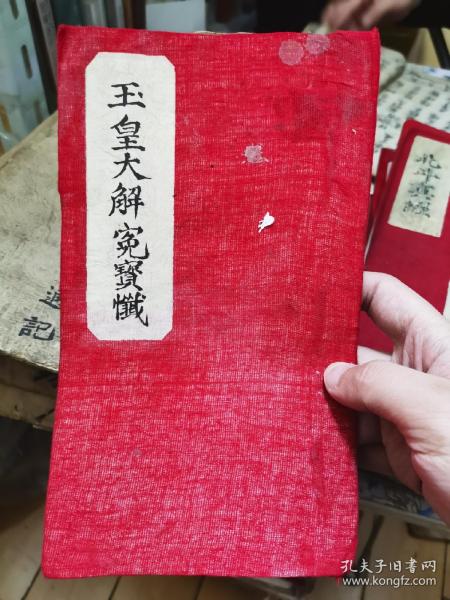 玉皇大解冤寶懺
北斗真經
記
孔夫子旧书网
www.kongfz.com